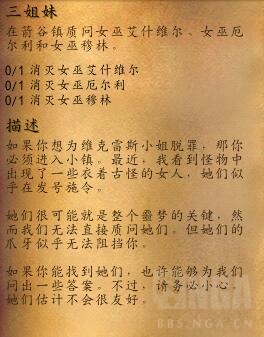 三姐妹
在箭谷镇质问女巫艾什维尔、女巫厄
尔利和女巫穆林。
0/1 消灭女巫艾什维尔
0/1 消灭女巫厄尔利
0/1 消灭女巫穆林
描述
如果你想为维克雷斯小姐脱罪，那你
必须进入小镇。最近，我看到怪物中
出现了一些衣着古怪的女人，她们似
乎在发号施令。
她们很可能就是整个噩梦的关键，然
而我们无法直接质问她们。但她们的
爪牙似乎无法阻挡你。
如果你能找到她们，也许能够为我们
问出一些答案。不过，请务必小心，
她们估计不会很友好。
NGA
BBS.NGA.CN